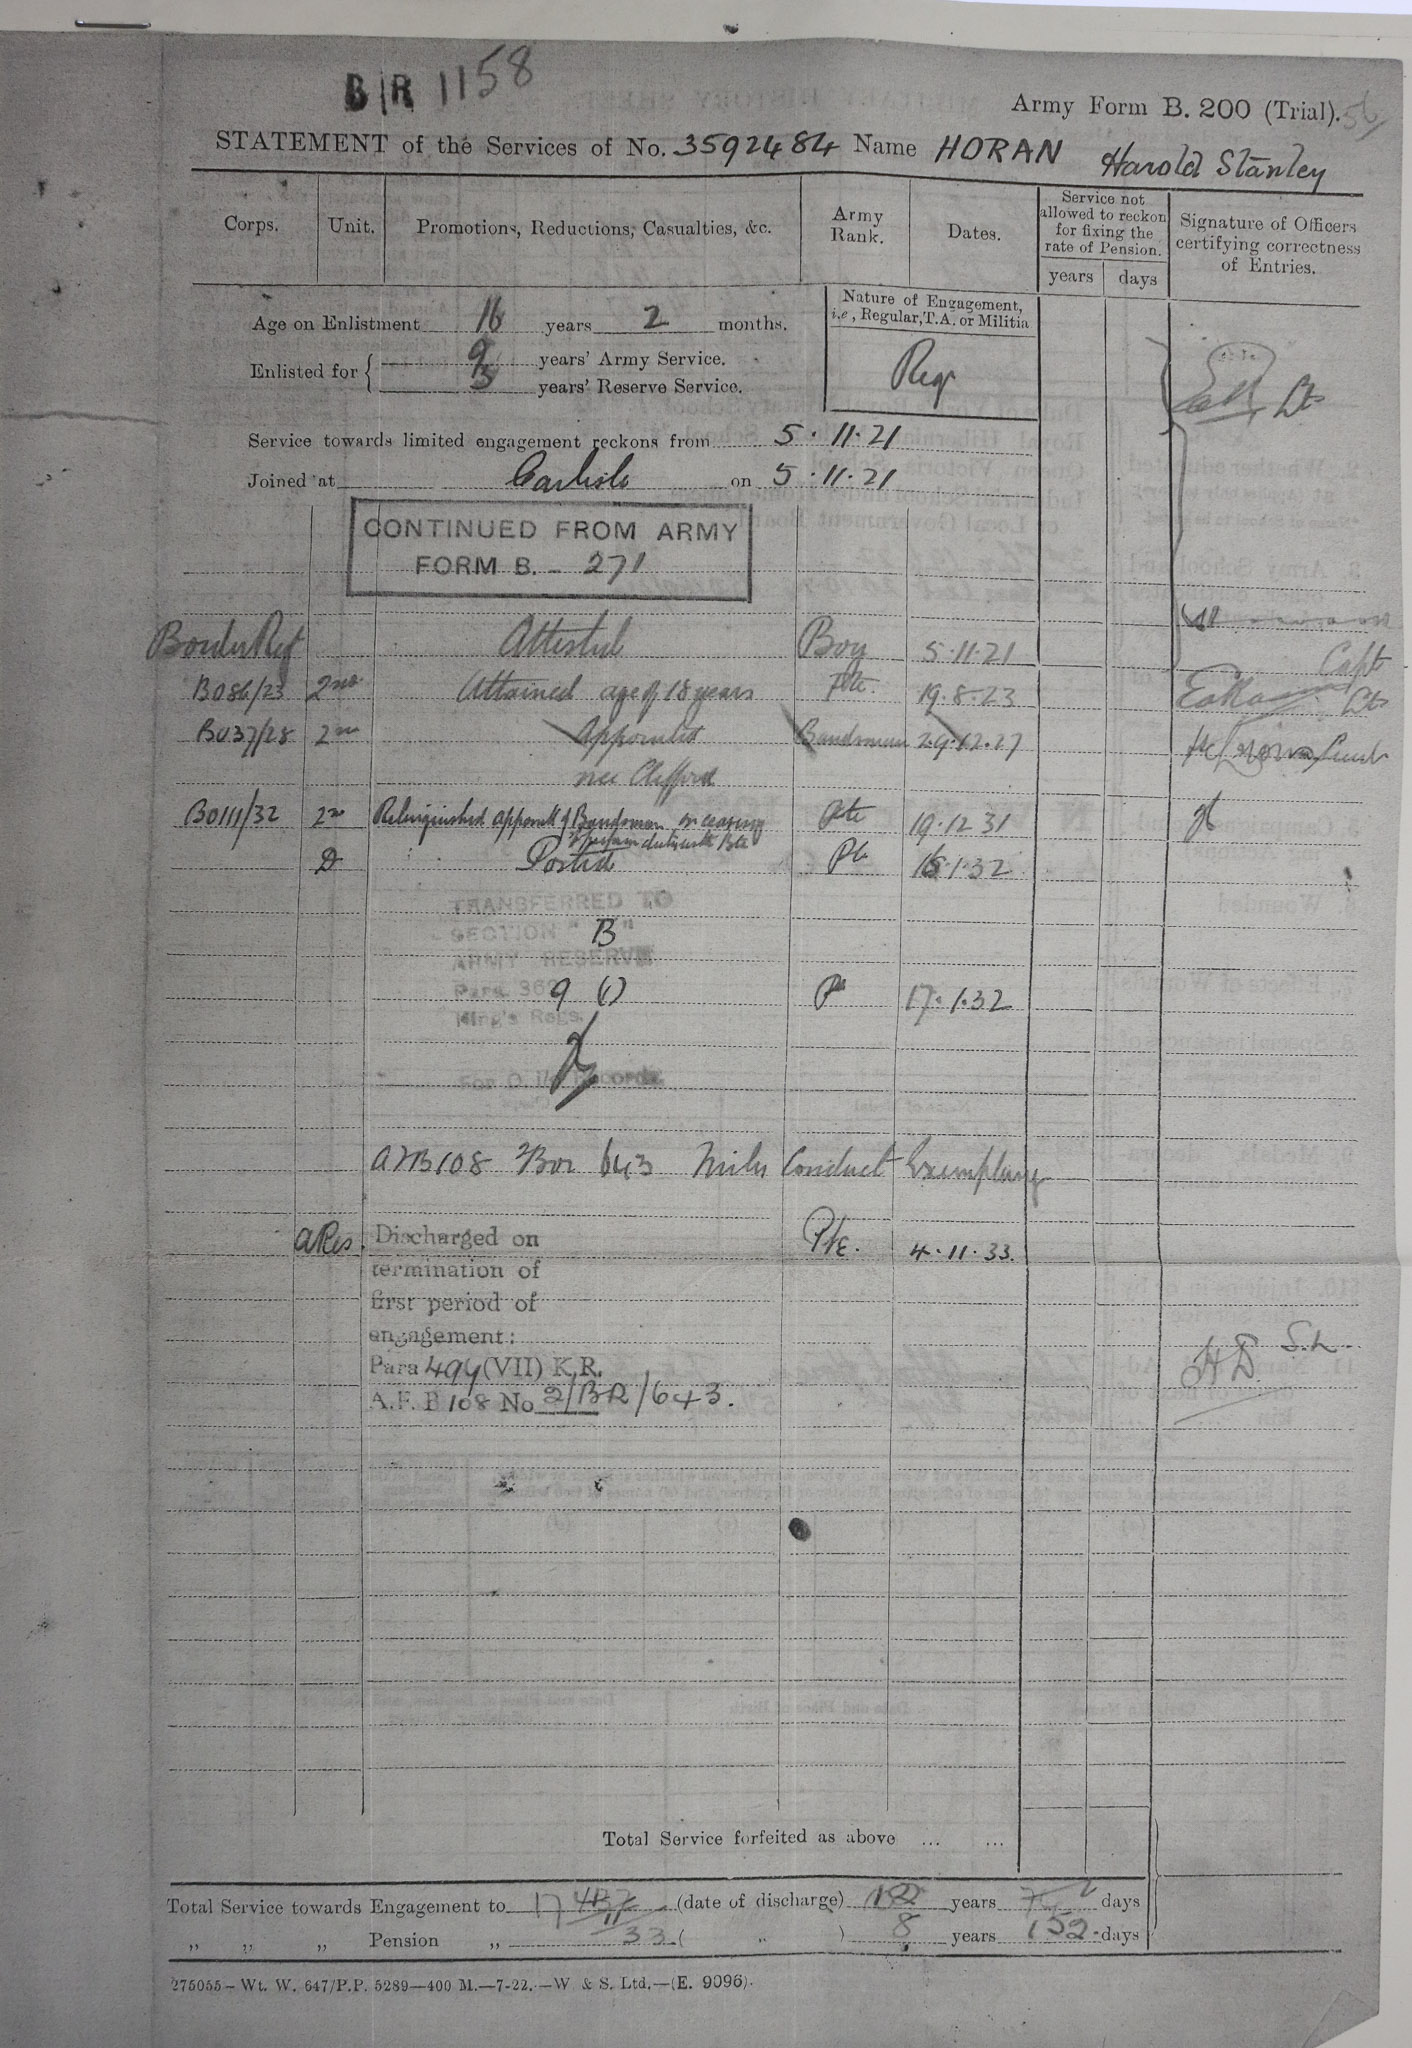 B/R 1158
Army Form B. 200 (Trial). 56/
STATEMENT of the Services of No. 3592484 Name HORAN Harold Stanley
Corps.
Unit.
Promotions, Reductions, Casualties, &c.
Army Rank.
Dates.
Service not allowed to reckon for fixing the rate of Pension.
years
days
Signature of Officers certifying correctness of Entries.
Age on Enlistment 16 years 2 months.
Nature of Engagement, i.e, Regular, T.A. or Militia
Reg
Enlisted for { 9 years' Army Service.
3 years' Reserve Service.
Lt
Service towards limited engagement reckons from 5.11.21
Joined at Carlisle on 5.11.21
CONTINUED FROM ARMY
FORM B. - 271
Border Regt Attested Boy 5.11.21 Capt
B086/23 2nd Attained age of 18 years Pte. 19.8.23 Lt
B037/28 2nd Appointed Bandsman 29.12.27 Lieut
vice Clifford
B0111/32 2nd Relinquished appointt of Bandsman on ceasing Pte 19.12.31
to perform duties with Bn
D Posted Pte 16.1.32
TRANSFERRED TO
SECTION "B"
ARMY RESERVE
Para. 369 (1) Pte 17.1.32
King's Regs.
For O. i/c Records
AFB108 2/Bor 643 Mily Conduct Exemplary
ARes. Discharged on Pte. 4.11.33.
termination of
first period of
engagement:
Para 494 (VII) K.R.
A.F. B 108 No 2/BR/643.
Total Service forfeited as above ... ...
Total Service towards Engagement to (date of discharge) 12 years days
" " " Pension " 33 ( " ) 8 years 152 days
275055—Wt. W. 647/P.P. 5289—400 M.—7-22.—W & S. Ltd.—(E. 9096).